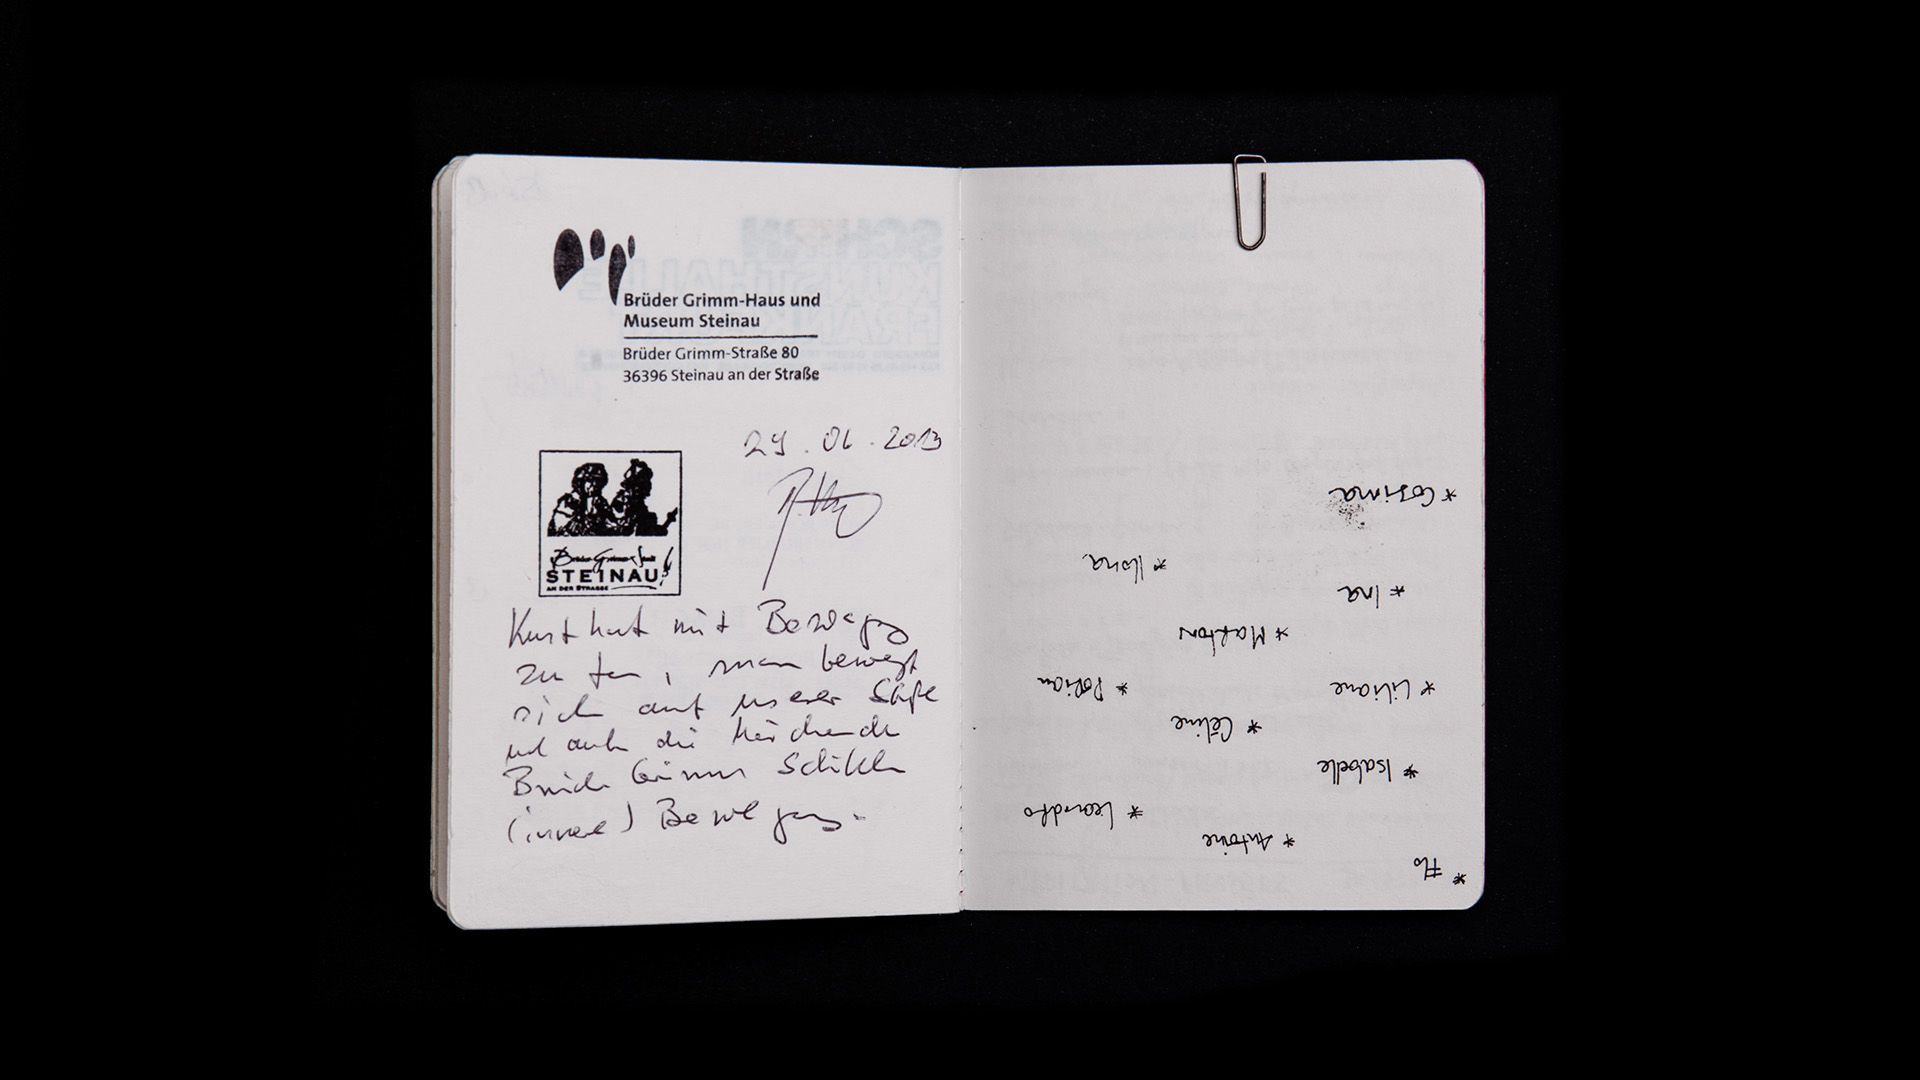 Brüder Grimm-Haus und
Museum Steinau
Brüder Grimm-Straße 80
36396 Steinau an der Straße
29.06.2013
Brüder Grimm Stadt
STEINAU
AN DER STRASSE
Kunst hat mit Bewegung
zu tun, man bewegt
sich auf unserer Straße
und auch die Märchen der
Brüder Grimm
(innere) Bewegung.
* Flo
* Antoine
* Leandro
* Isabelle
* Céline
* Liliane
* Dorian
* Marton
* Ina
* Ilona
* Cosima